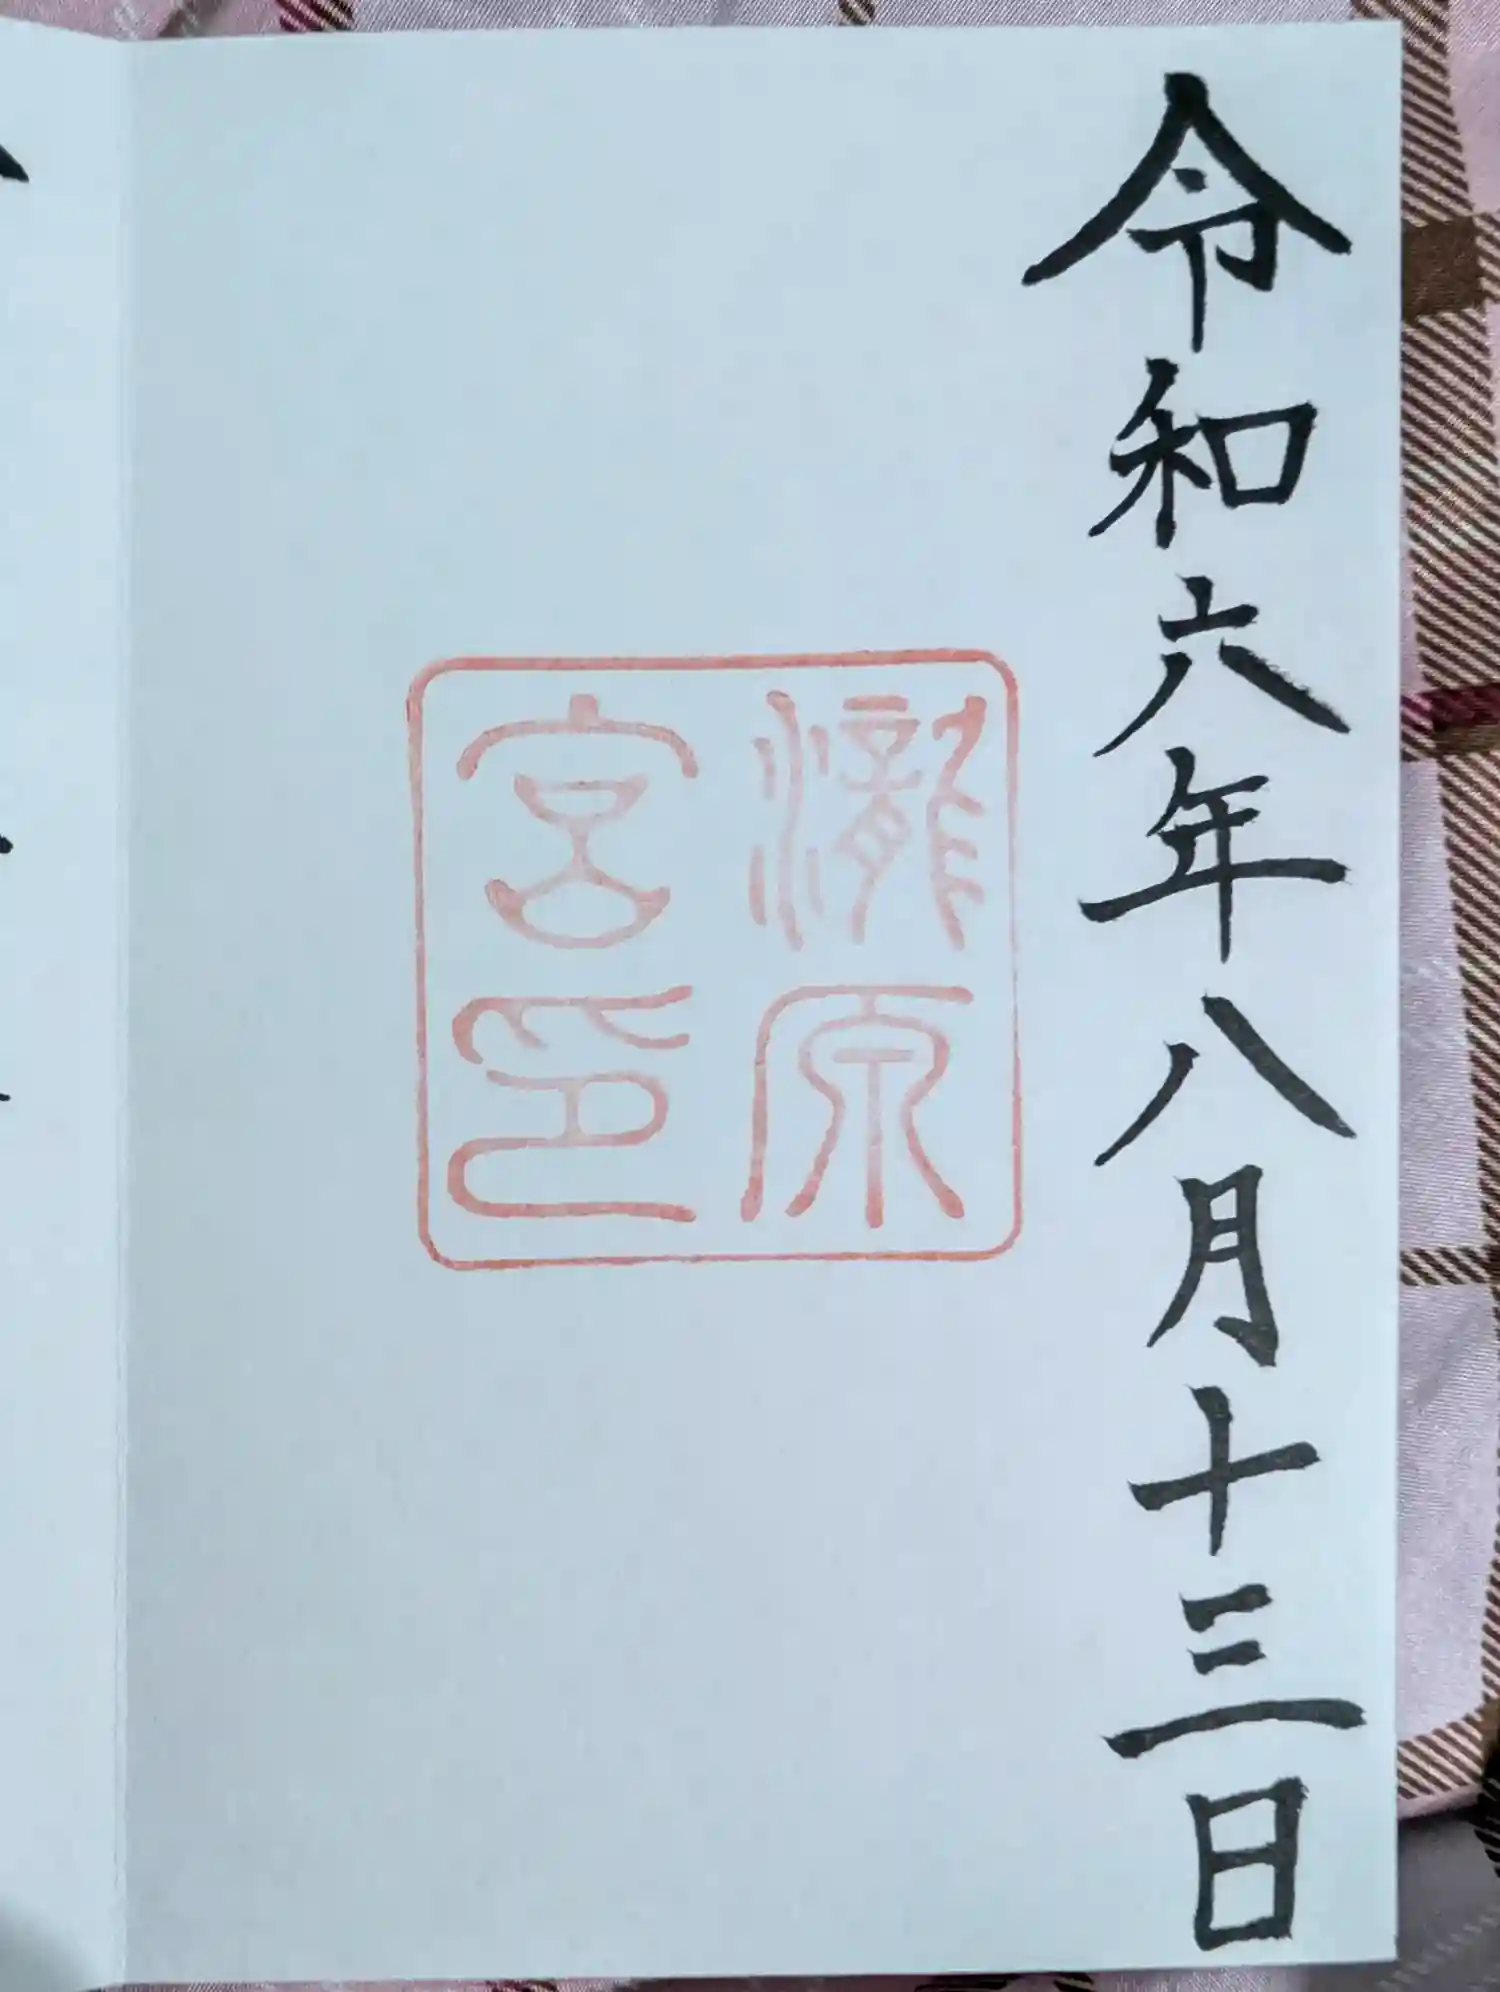 令和六年八月十三日
瀧原
宮印